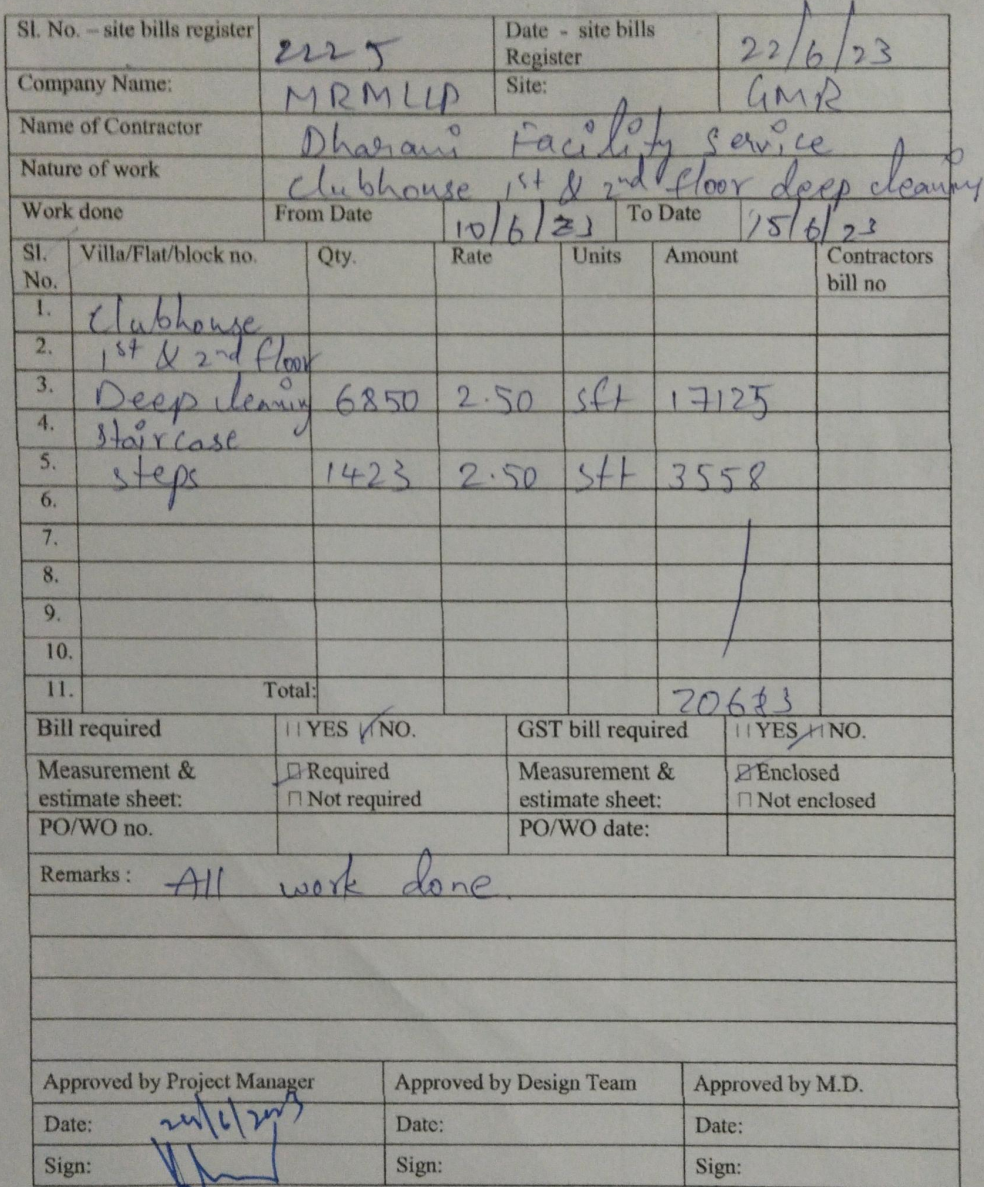 Sl. No. – site bills register 2225 Date - site bills Register 22/6/23
Company Name: MRMLLP Site: GMR
Name of Contractor Dharani Facility Service
Nature of work Clubhouse 1st & 2nd floor deep cleaning
Work done From Date 10/6/23 To Date 15/6/23
Sl. No. Villa/Flat/block no. Qty. Rate Units Amount Contractors bill no
1. Clubhouse
2. 1st & 2nd floor
3. Deep cleaning 6850 2.50 sft 17125
4. Staircase
5. steps 1423 2.50 sft 3558
6.
7.
8.
9.
10.
11. Total: 20683
Bill required YES NO. GST bill required YES NO.
Measurement & estimate sheet: Required Measurement & estimate sheet: Enclosed
Not required Not enclosed
PO/WO no. PO/WO date:
Remarks : All work done.
Approved by Project Manager Approved by Design Team Approved by M.D.
Date: Date: Date:
Sign: Sign: Sign: